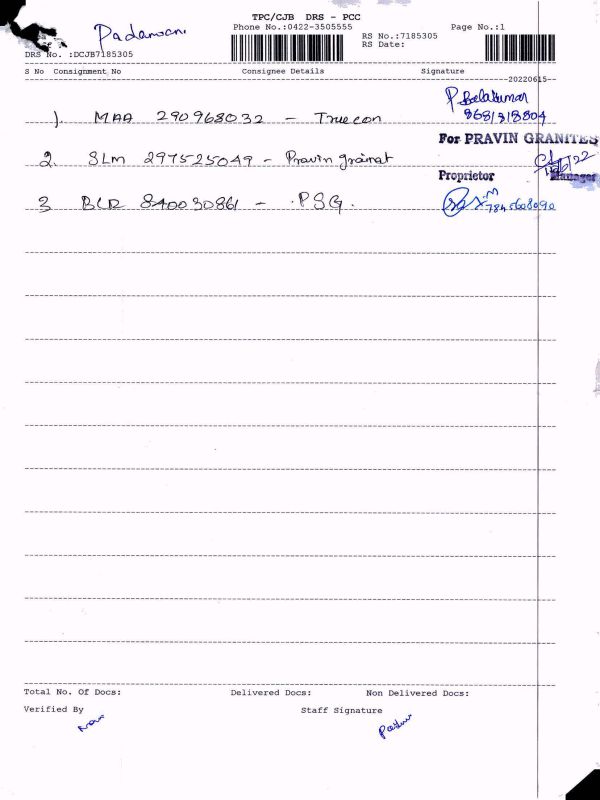 TPC/CJB DRS - PCC
Padamvani
Phone No.:0422-3505555
Page No.:1
RS No.:7185305
RS Date:
DRS No. :DCJB7185305
S No Consignment No Consignee Details Signature
20220615
P Balakumar
8681818804
1). MAA 290968032 - Truecon
For PRAVIN GRANITES
2. SLM 297525049 - Pravin grainat
Proprietor Manager
3 BLR 840030861 - PSG.
Total No. Of Docs: Delivered Docs: Non Delivered Docs:
Verified By Staff Signature